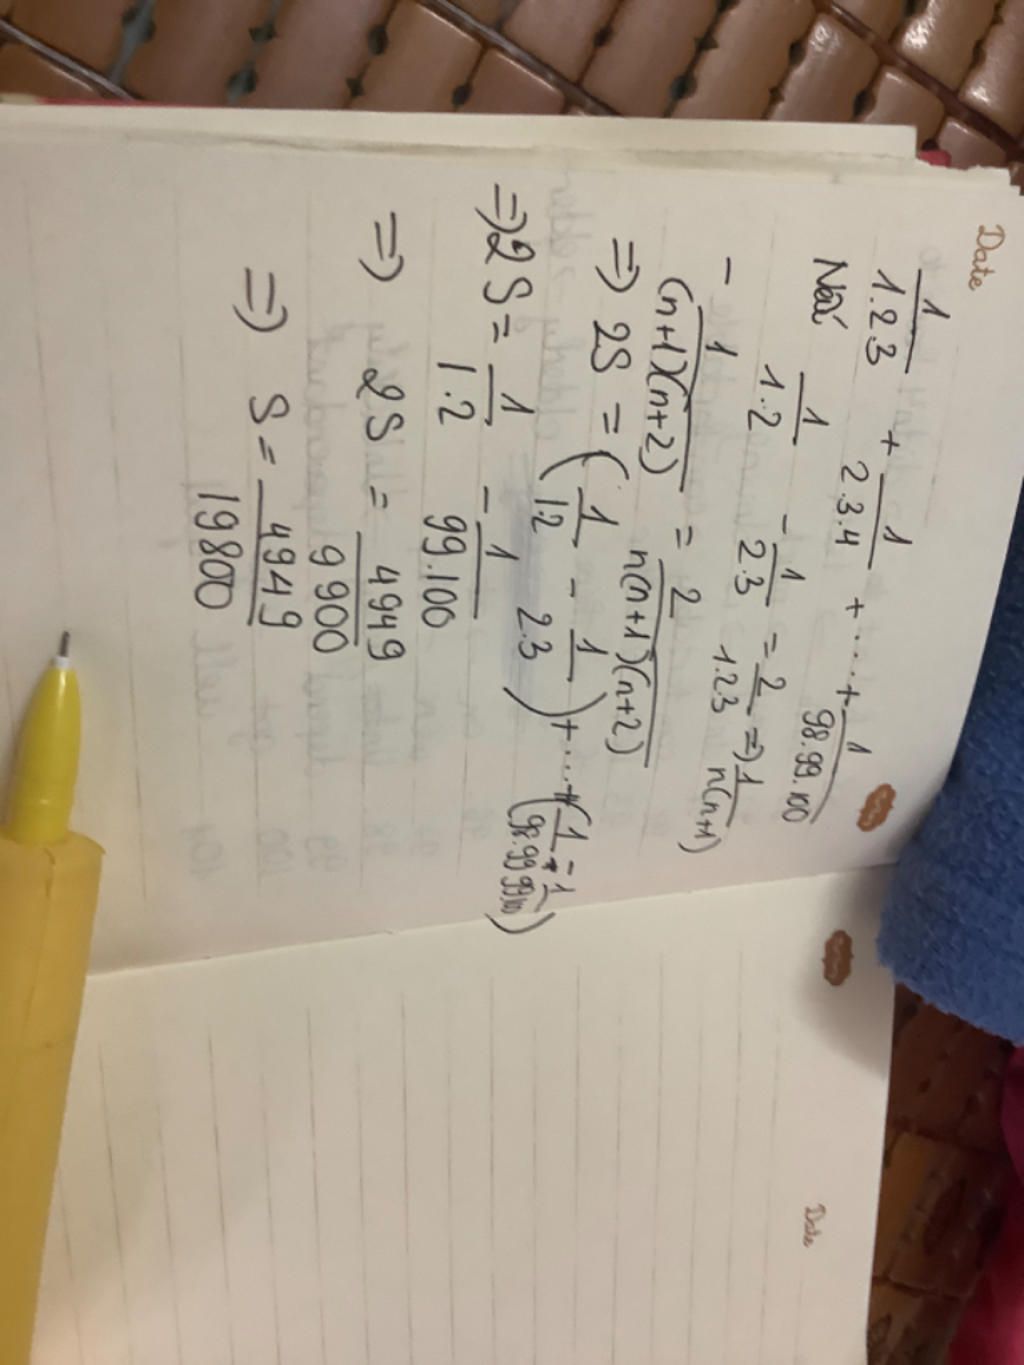 Date
1/1.2.3 + 1/2.3.4 + .... + 1/98.99.100
1/1.2 - 1/2.3 = 2/1.2.3 => 1/n(n+1)
- 1/(n+1)(n+2) = 2/n(n+1)(n+2)
=> 2S = (1/1.2 - 1/2.3) + ... + (1/98.99 - 1/99.100)
=> 2S = 1/1.2 - 1/99.100
=> 2S = 4949/9900
=> S = 4949/19800
Date